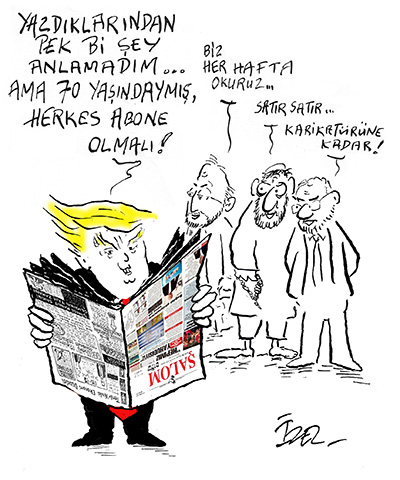 YAZDIKLARINDAN
PEK Bİ ŞEY
ANLAMADIM...
AMA 70 YAŞINDAYMIŞ,
HERKES ABONE
OLMALI!
BİZ
HER HAFTA
OKURUZ...
SATIR SATIR...
KARİKATÜRÜNE
KADAR!
ŞALOM
İZEL